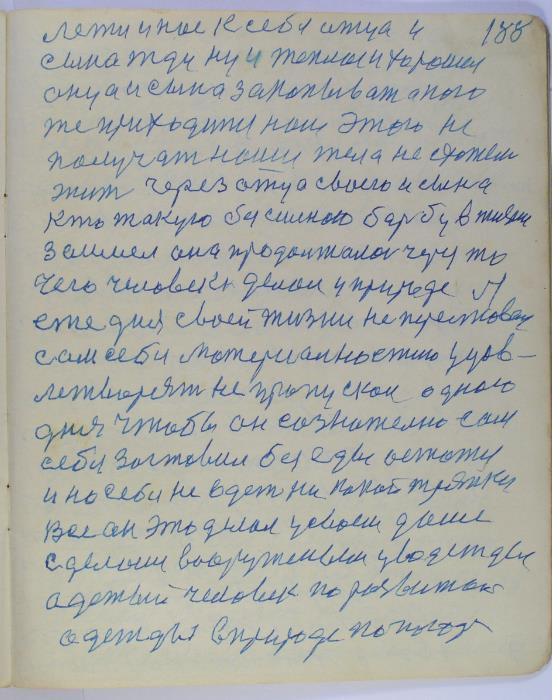 188
к себе отца и
сына жди ну и теплой и хорошей
онца и сына закапывать а ного
же приходится нам этого не
получать наши тела не сможем
жить через отца своего и сына
кто такую бесилною барбу в жизни
заимел она продолжалас через то
чего человек делал у природе И
еже дня своей жизни не переставал
сам себя материалностию удов-
летворят не пропускал одного
дня чтобы он сознателно сам
себя заставил без еды остатся
и на себя не одет ни какой тряпки
все он это делал у своем доме
сделаем вооруженем у водежде
одетый человек по развитою
одежды в природе по погоде